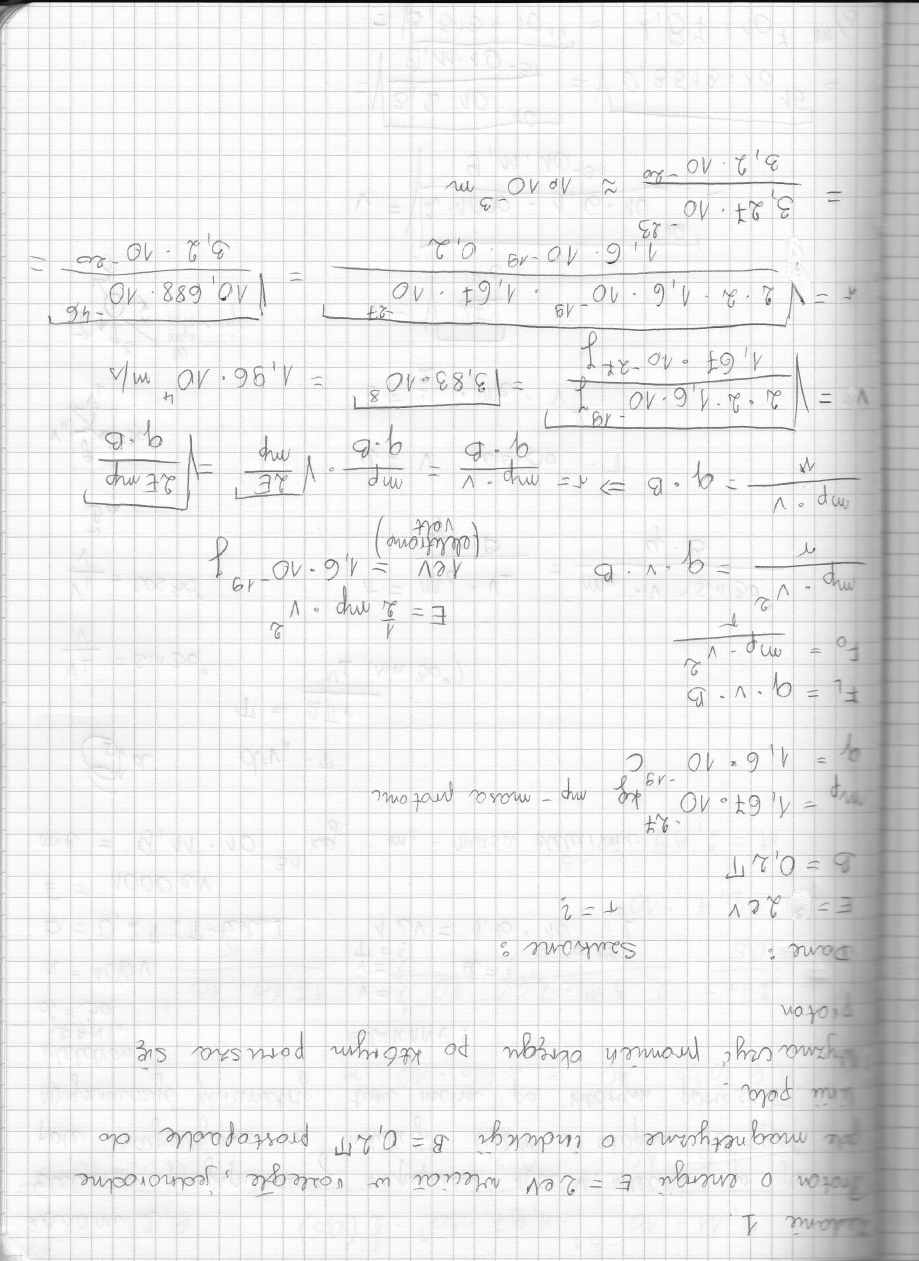 Zadanie 1.
Proton o energii E = 2eV wleciał w rozległe, jednorodne
pole magnetyczne o indukcji B = 0,2T prostopadle do
linii pola.
Wyznaczyć promień okręgu po którym porusza się
proton
Dane: Szukane:
E = 2eV r = ?
B = 0,2T
mp = 1,67 · 10^-27 kg mp - masa protonu
q = 1,6 · 10^-19 C
FL = q · v · B
Fo = mp · v^2 / r
E = 1/2 mp · v^2
mp · v^2 / r = q · v · B 1eV = 1,6 · 10^-19 J
(elektrono volt)
mp · v / r = q · B => r = mp · v / q · B = mp / q · B · √(2E / mp) = √(2E mp) / q · B
v = √(2 · 2 · 1,6 · 10^-19 J / 1,67 · 10^-27 J) = √(3,83 · 10^8) = 1,96 · 10^4 m/s
r = √(2 · 2 · 1,6 · 10^-19 · 1,67 · 10^-27) / 1,6 · 10^-19 · 0,2 = √(10,688 · 10^-46) / 3,2 · 10^-20 =
= 3,27 · 10^-23 / 3,2 · 10^-20 ≈ 1 · 10^-3 m